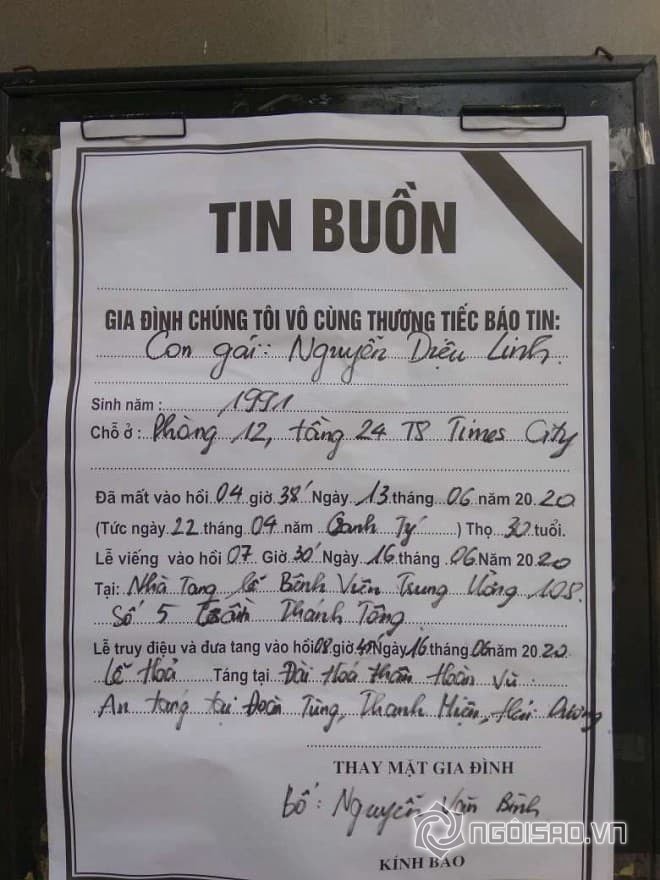 TIN BUỒN
GIA ĐÌNH CHÚNG TÔI VÔ CÙNG THƯƠNG TIẾC BÁO TIN:
Con gái: Nguyễn Diệu Linh
Sinh năm : 1991
Chỗ ở : Phòng 12, tầng 24 T8 Times City
Đã mất vào hồi 04 giờ 38' Ngày 13 tháng 06 năm 2020
(Tức ngày 22 tháng 04 năm Canh Tý ) Thọ 30 tuổi.
Lễ viếng vào hồi 07 Giờ 30' Ngày 16 tháng 06 Năm 2020
Tại: Nhà Tang lễ Bệnh Viện Trung Ương 108.
Số 5 Trần Thánh Tông
Lễ truy điệu và đưa tang vào hồi 08 giờ 45 Ngày 16 tháng 06 năm 2020
Lễ Hoả Táng tại Đài Hoá thân Hoàn Vũ
An táng tại Đoàn Tùng, Thanh Miện, Hải Dương
THAY MẶT GIA ĐÌNH
bố: Nguyễn Văn Bình
NGÔISAO.VN
KÍNH BÁO